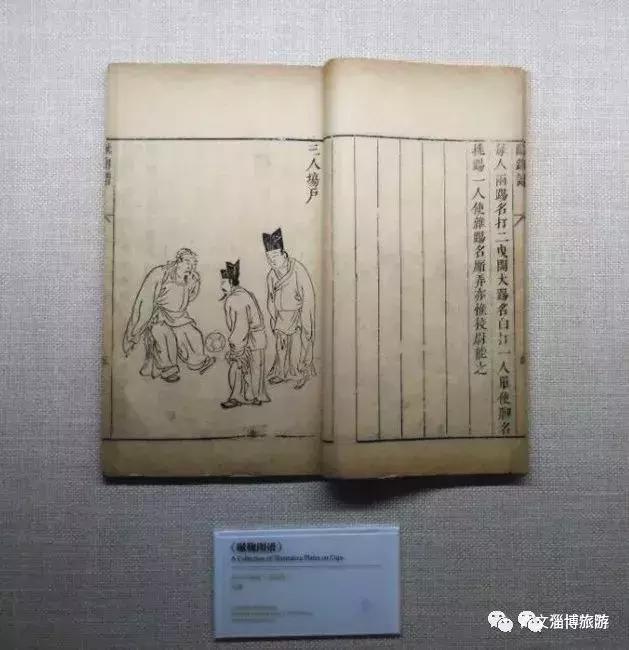 蹴踘譜
每人兩踢名打二曳開大踢名白打一人單使脚名
挑踢一人使雜踢名廝弄亦惟挍尉能之
三人塲戶
《蹴鞠图谱》
A Collection of Illustrative Plates on Cuju
文淄博旅游